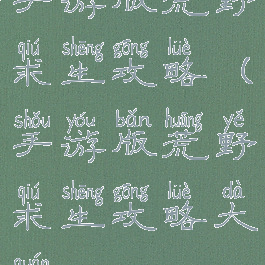 手游版荒野
qiú shēng gōng lüè
求生攻略(
shǒu yóu bǎn huāng yě
手游版荒野
qiú shēng gōng lüè dà
求生攻略大
quán